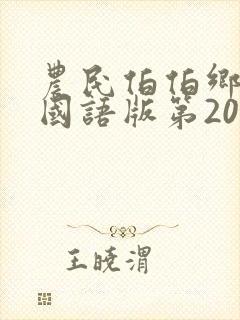 農民伯伯鄉
國語版第20
王曉渭